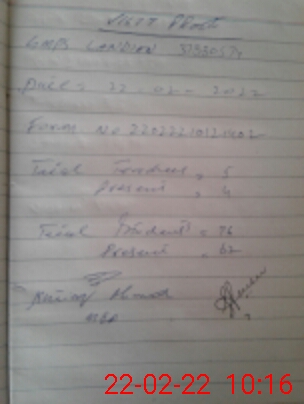 Visit Proof
GMPS LANDIAN 37330574
Date: 22-02-2022
Form No 22022210121402
Total Teachers = 5
Present = 4
Total Students = 76
Present = 62
Ahmad
MEA
22-02-22 10:16